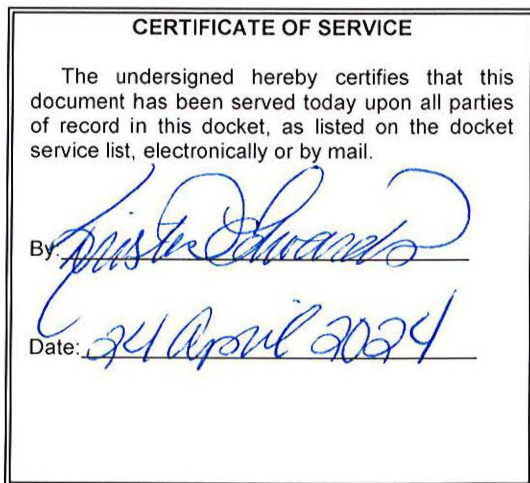 CERTIFICATE OF SERVICE
The undersigned hereby certifies that this
document has been served today upon all parties
of record in this docket, as listed on the docket
service list, electronically or by mail.
By: Edwards
Date: 24 April 2024